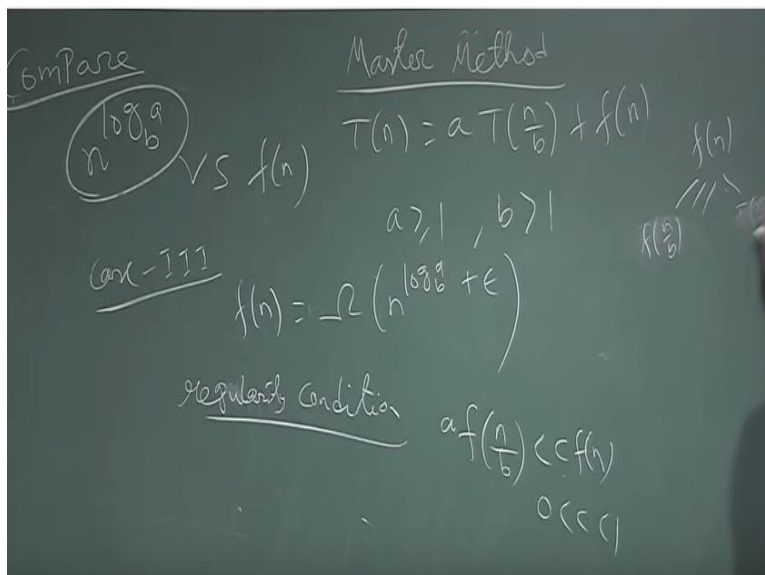 Compare
n^log_b a vs f(n)
Master Method
T(n) = a T(n/b) + f(n)
a ≥ 1, b > 1
f(n)
f(n/b)
Case-III
f(n) = Ω(n^log_b a + ε)
regularity Condition
a f(n/b) < c f(n)
0 < c < 1